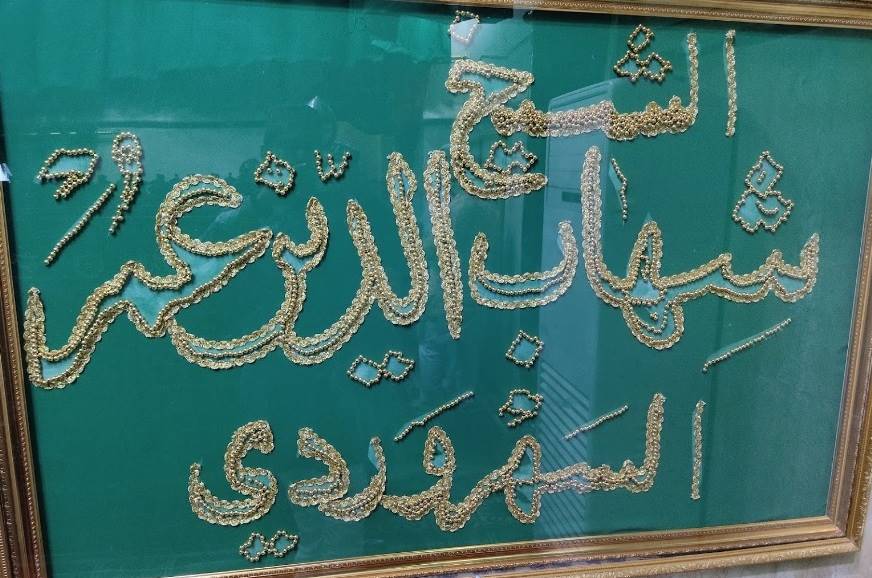 الشيخ
شِهَابُ الدِّيْن عُمَرُ
السَّهْرَوَرْدِي